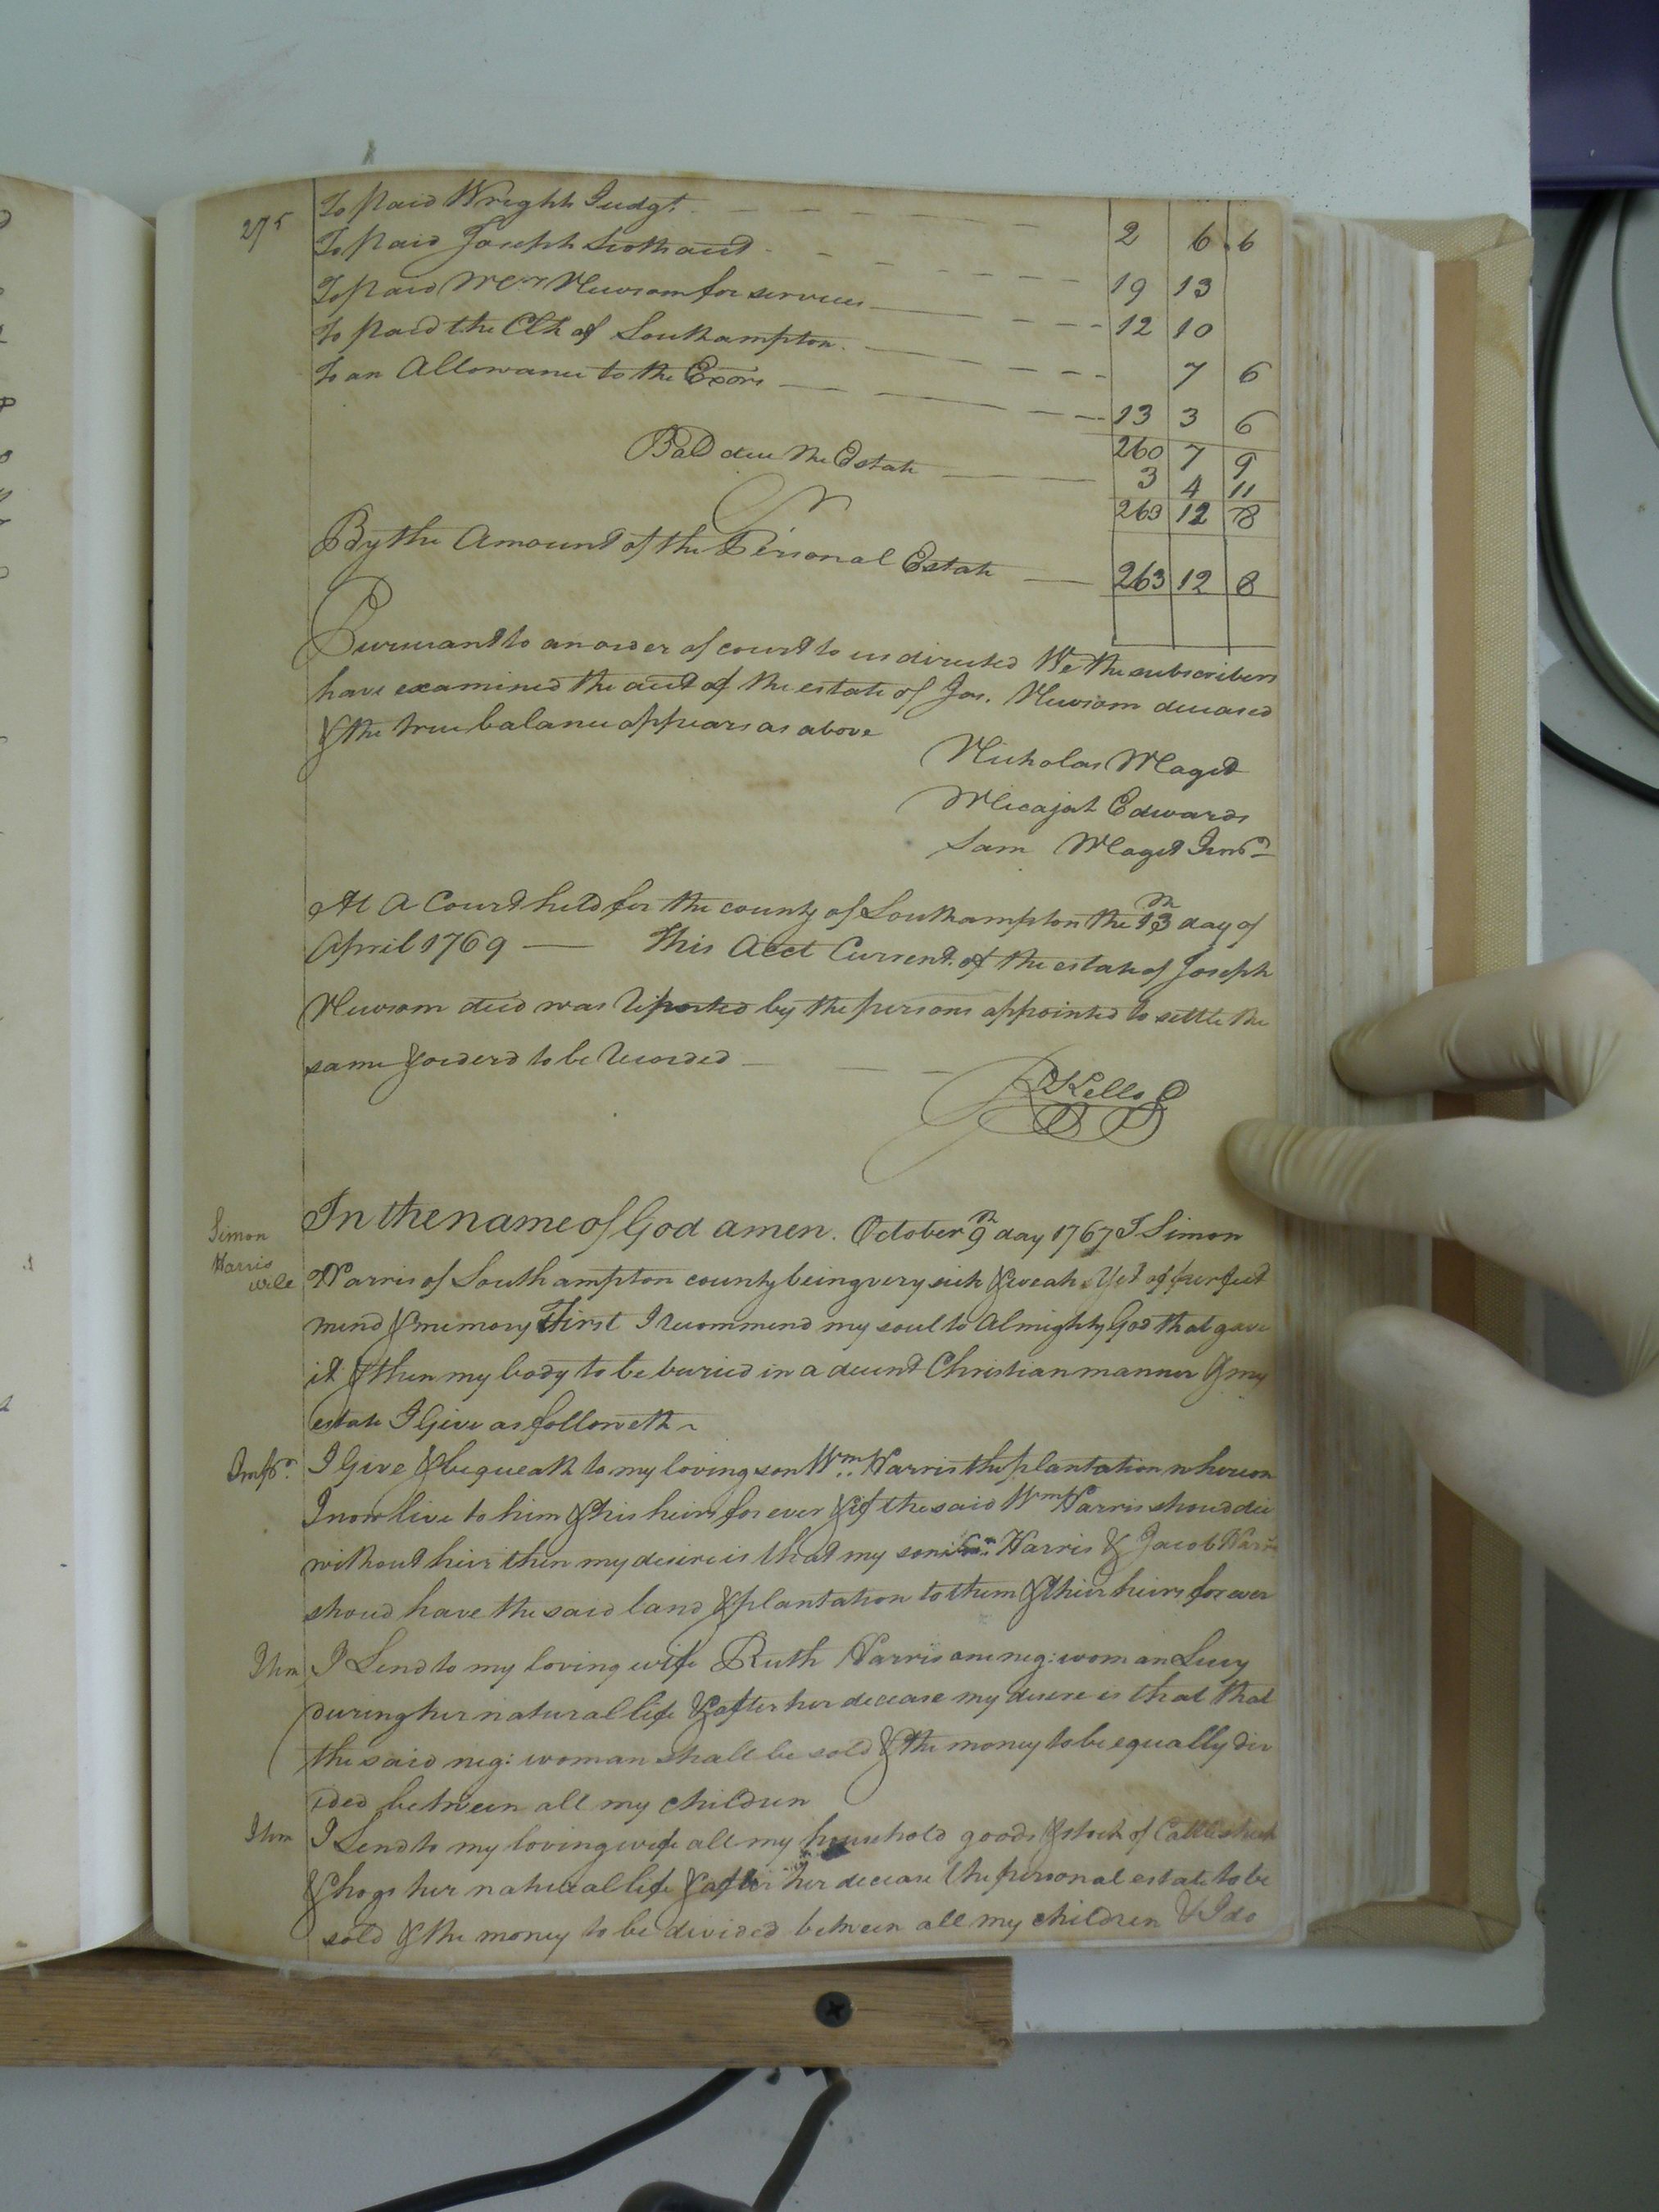 275
To paid Wright Judgt. 2 6 6
To paid Joseph Scott acct 19 13
To paid Wm Newsom for services 12 10
To paid the Clk of Southampton. 7 6
To an Allowance to the Exors 13 3 6
260 7 9
Bal due the Estate 3 4 11
263 12 8
By the Amount of the Personal Estate 263 12 8
Pursuant to an order of court to us directed We the subscribers
have examined the acct of the estate of Jos. Newsom deceased
& the true balance appears as above
Nicholas Maget
Micajah Edwards
Sam Maget Junr
At A Court held for the county of Southampton the 13th day of
April 1769 — This Acct Current of the estate of Joseph
Newsom decd was reported by the persons appointed to settle the
same & orderd to be recorded
R Kello C
Simon
Harris
will
In the name of God amen. October 9th day 1767 I Simon
Harris of Southampton county being very sick & weak Yet of purfect
mind & memory First I recommend my soul to Almighty God that gave
it & then my body to be buried in a decent Christian manner & my
estate I Give as followeth
I Give & bequeath to my loving son Wm. Harris the plantation whereon
I now live to him & his heirs for ever & if the said Wm Harris shoud die
without heir then my desire is that my son Harris & Jacob Harris
shoud have the said land & plantation to them & their heirs for ever
Itm I Lend to my loving wife Ruth Harris one neg: woman Lucy
during her natural life & after her decease my desire is that that
the said neg: woman shall be sold & the money to be equally div
ided between all my children
Itm I Lend to my loving wife all my household goods & stock of Cattle
& hogs her natural life & after her decease the personal estate to be
sold & the money to be divided between all my children & I do